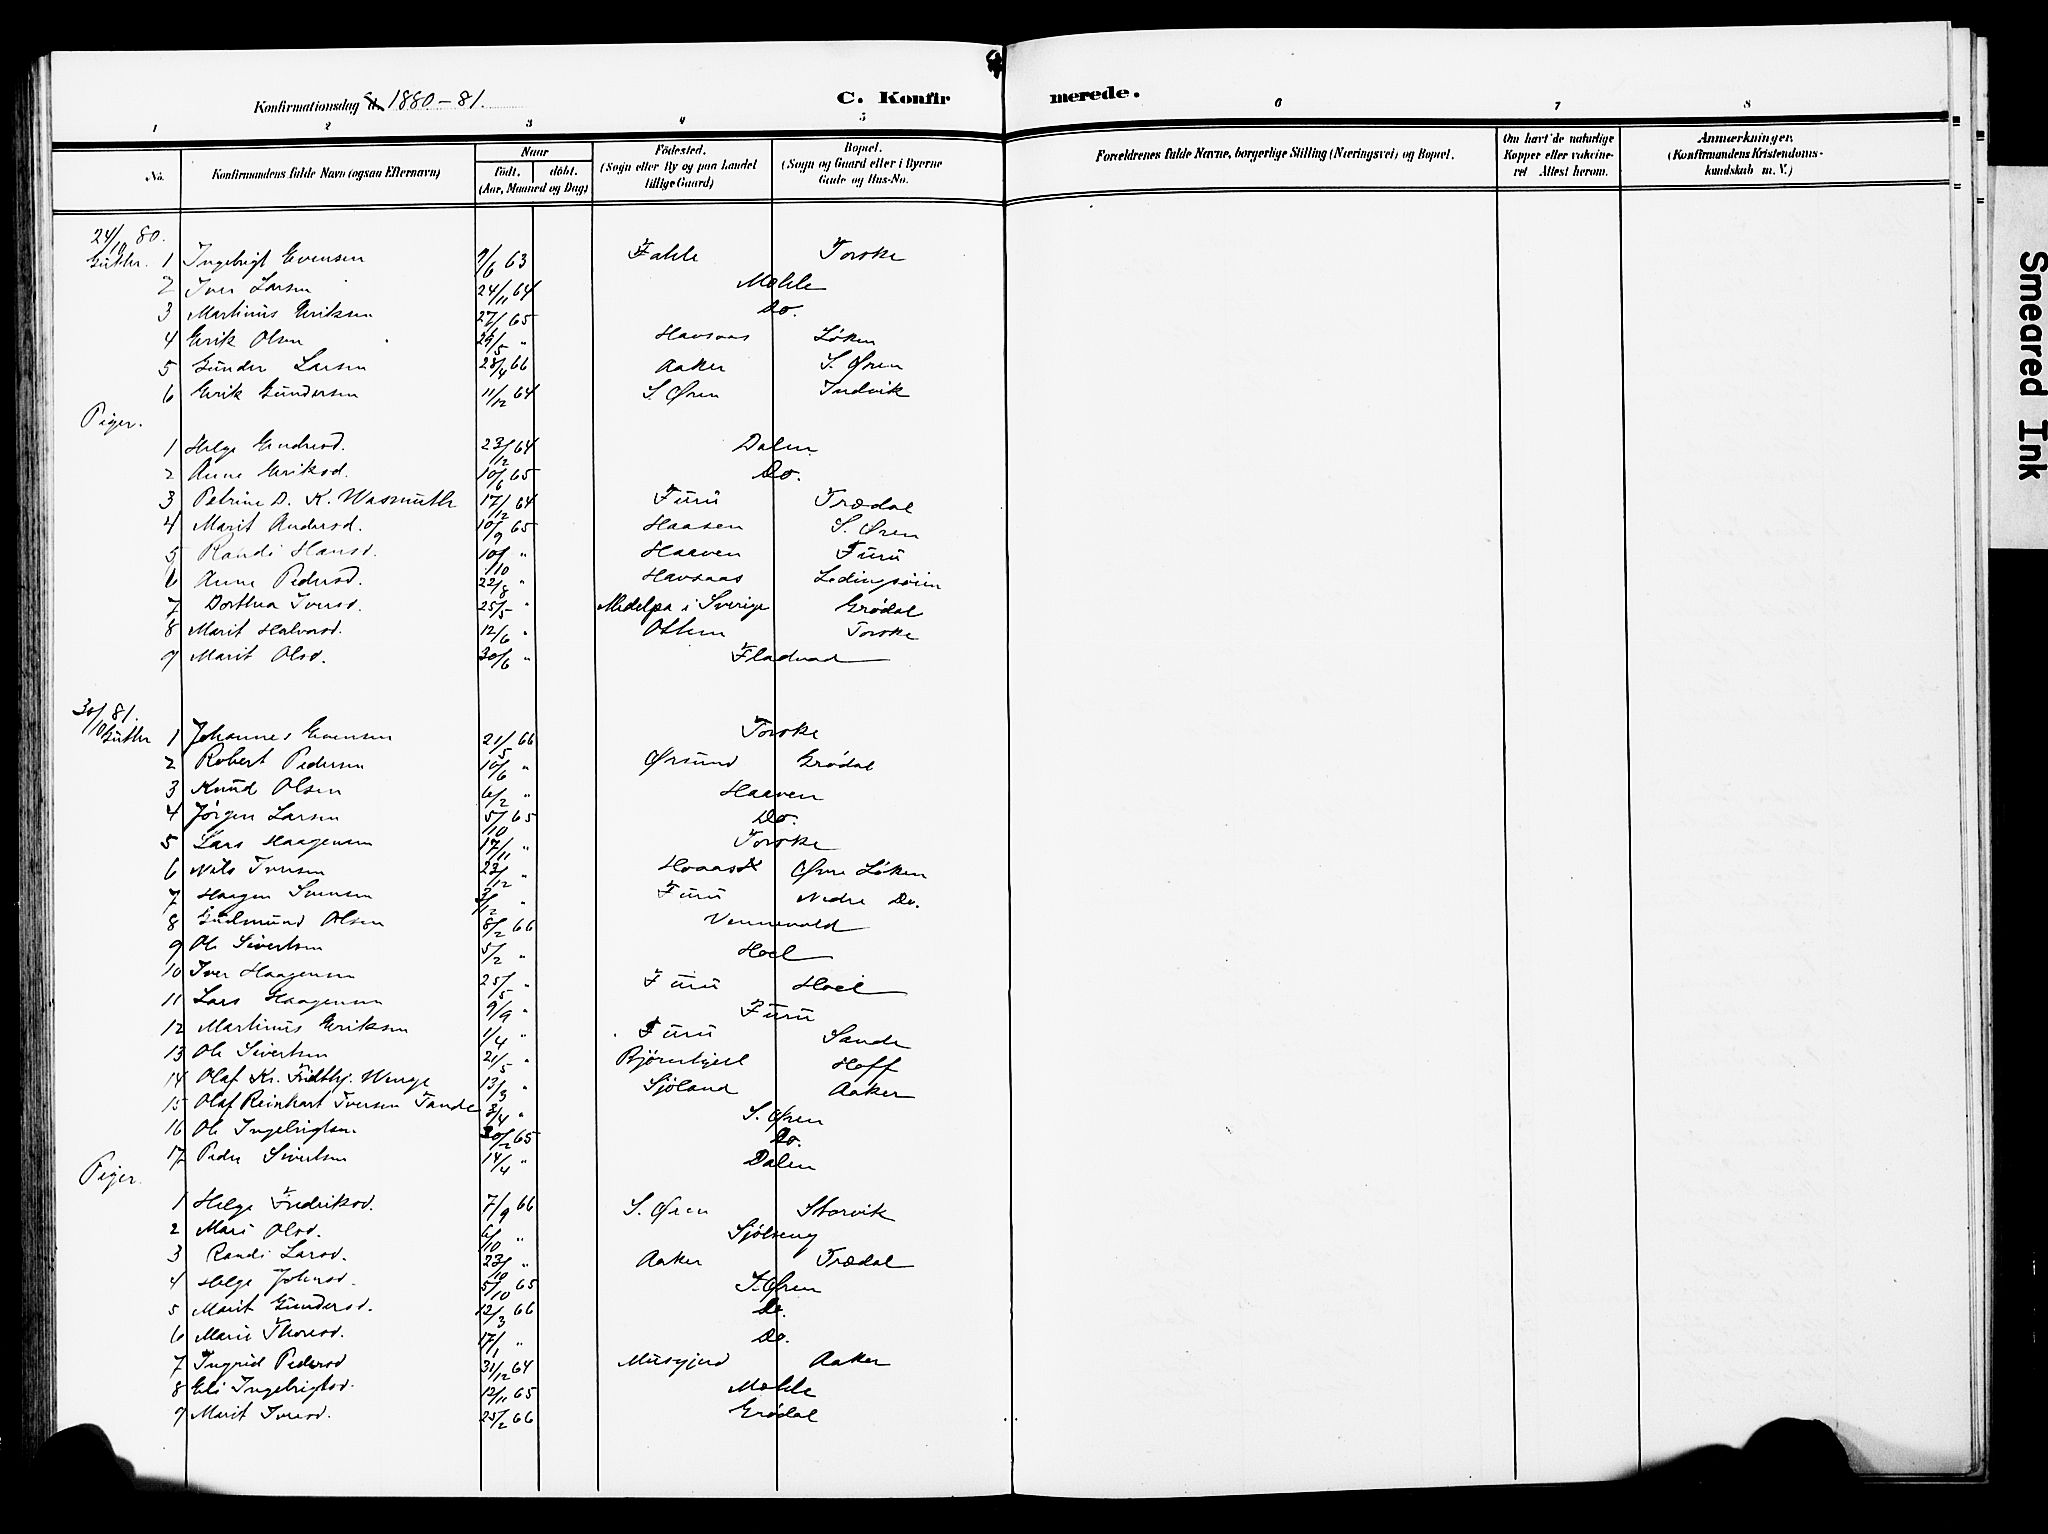 Konfirmationsdag 1880-81. C. Konfirmerede.
1 2 3 4 5 6 7 8
No. Konfirmandens fulde Navn (ogsaa Efternavn) Naar født. døbt. (Aar, Maaned og Dag) Fødested. (Sogn eller By og paa Landet tillige Gaard) Bopæl. (Sogn og Gaard eller i Byerne Gade og Hus-No. Forældrenes fulde Navne, borgerlige Stilling (Næringsvei) og Bopæl. Om havt de naturlige Kopper eller vakcineret Attest herom. Anmærkninger. (Konfirmandens Kristendomskundskab m. V.)
24/10 80.
Gutter. 1 Ingebrigt Evensen 9/6 63 Fahle Torske
2 Iver Larsen 24/11 64 Mæhle
3 Martinus Eriksen 27/1 65 Do.
4 Erik Olsen 26/5 " Havsaas Løken
5 Gunder Larsen 28/4 66 Aaker S. Øren
6 Erik Gundersen 11/12 64 S. Øren Indvik
Piger.
1 Helge Endresd. 23/12 64 Dalen
2 Anne Eriksd. 10/6 65 Do.
3 Petrine D. K. Wasmuth 17/12 64 Furu Trædal
4 Marit Andersd. 10/9 65 Haasen S. Øren
5 Randi Hansd. 10/10 " Haaven Furu
6 Anne Pedersd. 22/8 " Havsaas Ledingsøien
7 Dorthea Iversd. 25/5 " Medelpa i Sverige Grødal
8 Marit Halvorsd. 12/6 " Ottem Torske
9 Marit Olsd. 30/6 " Fladvad
30/10 81.
Gutter 1 Johannes Evensen 21/5 66 Torske
2 Robert Pedersen 10/6 " Ørsund Grødal
3 Knud Olsen 6/2 " Haaven
4 Jørgen Larsen 5/10 65 Do.
5 Lars Haagensen 17/11 " Torske
6 Nils Iversen 23/12 " Hovaas Øvre Løken
7 Haagen Svensen 3/12 " Furu Nedre Do.
8 Gudmund Olsen 8/2 66 Vennevold
9 Ole Sivertsen 5/2 " Hoel
10 Iver Haagensen 25/5 " Furu Hoel
11 Lars Haagensen 9/9 " Furu
12 Martinus Eriksen 1/4 " Furu Sande
13 Ole Sivertsen 21/5 " Bjørnhjell Hoff
14 Olaf Kr. Fridthj. Wenge 13/3 " Sjøland Aaker
15 Olaf Reinhart Iversen Tande 3/4 " S. Øren
16 Ole Ingebrigtsen 20/2 65 Do.
17 Peder Sivertsen 14/4 " Dalen
Piger.
1 Helge Fredriksd. 7/9 66 S. Øren Storvik
2 Mari Olsd. 6/10 " Sjølseng
3 Randi Larsd. 23/10 " Aaker Trædal
4 Helge Johnsd. 5/10 65 S. Øren
5 Marit Gundersd. 12/3 66 Do.
6 Marie Thoresd. 17/1 " Do.
7 Ingrid Pedersd 31/12 64 Musgjerd Aaker
8 Eli Ingebrigtsd. 12/11 65 Mæhle
9 Marit Iversd. 25/2 66 Grødal
Smeared Ink